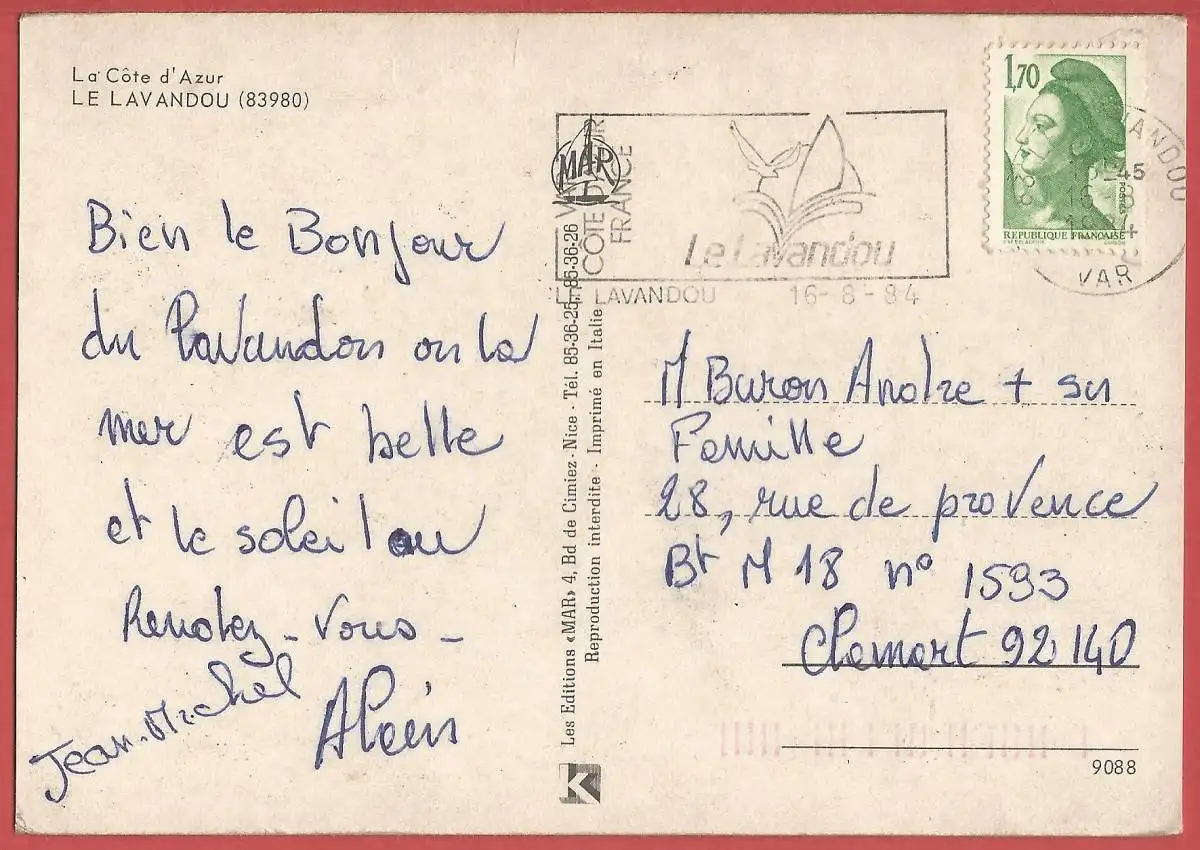 La Côte d'Azur
LE LAVANDOU (83980)
Bien le Bonjour
du Lavandou ou la
mer est belle
et le soleil au
Rendez-vous-
Jean-Michel
Alain
MAR
CÔTE
FRANCE
Le Lavandou
LE LAVANDOU 16-8-84
1,70
POSTES
REPUBLIQUE FRANÇAISE
VAR
Les Editions «MAR» 4, Bd de Cimiez - Nice - Tél. 85-36-25, 85-36-26
Reproduction interdite - Imprimé en Italie
M Baron Andre + sa
Famille
28, rue de provence
Bt M 18 n° 1593
Clamart 92140
K
9088